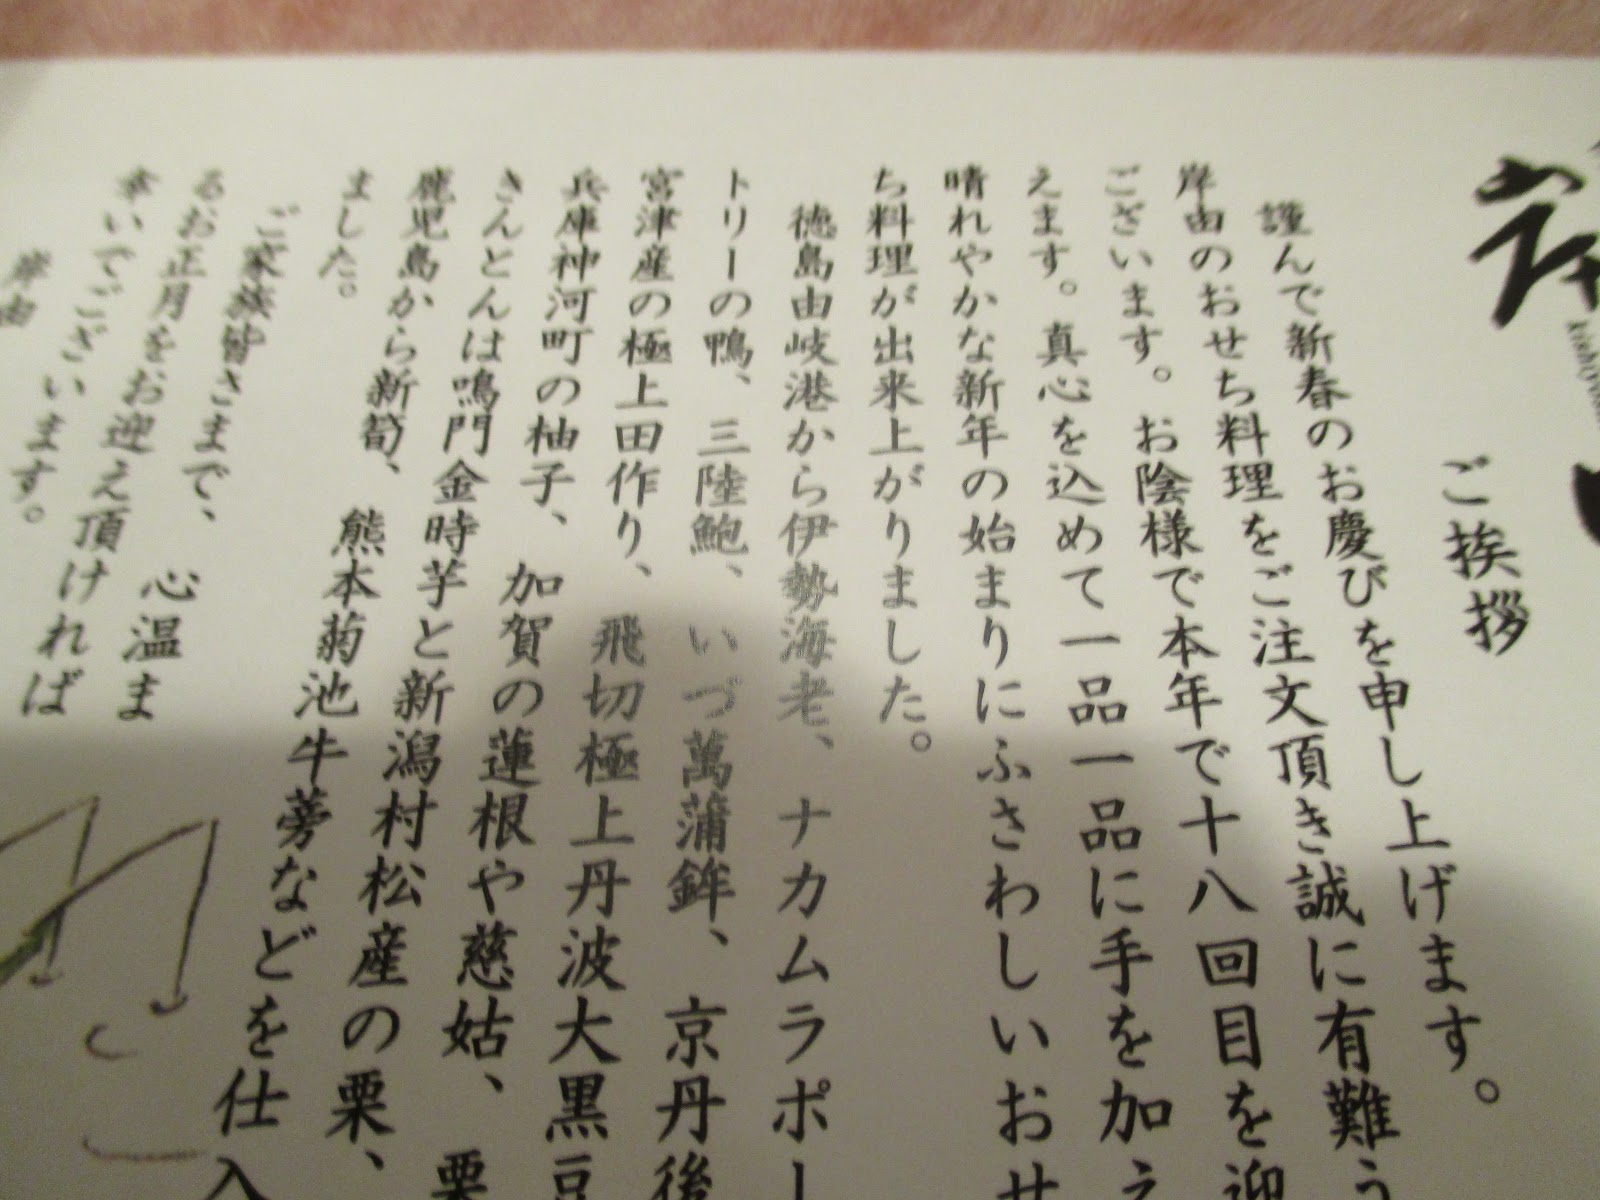 岸
ご挨拶
謹んで新春のお慶びを申し上げます。
岸由のおせち料理をご注文頂き誠に有難う
ございます。お陰様で本年で十八回目を迎
えます。真心を込めて一品一品に手を加え
晴れやかな新年の始まりにふさわしいおせ
ち料理が出来上がりました。
徳島由岐港から伊勢海老、ナカムラポー
トリーの鴨、三陸鮑、いづ萬蒲鉾、京丹後
宮津産の極上田作り、飛切極上丹波大黒豆
兵庫神河町の柚子、加賀の蓮根や慈姑、栗
きんとんは鳴門金時芋と新潟村松産の栗、
鹿児島から新筍、熊本菊池牛蒡などを仕入
ました。
ご家族皆さまで、心温ま
るお正月をお迎え頂ければ
幸いでございます。
岸由